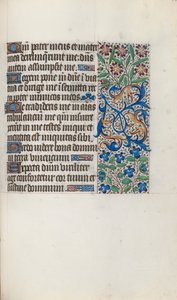 Qm pater meus et mater
mea dereliquerunt me dns
autem assumpsit me.
Legem pone m dne i via
tua et dirige me i semita recta
propter inimicos meos
Ne tradideris me in aias
tribulanciu me qm insurrex
erunt in me testes iniqui et
mentita est iniquitas sibi
Credo videre bona domini
in terra vivencium
Expecta dnm viriliter
age confortetur cor tuum et
sustine dominum